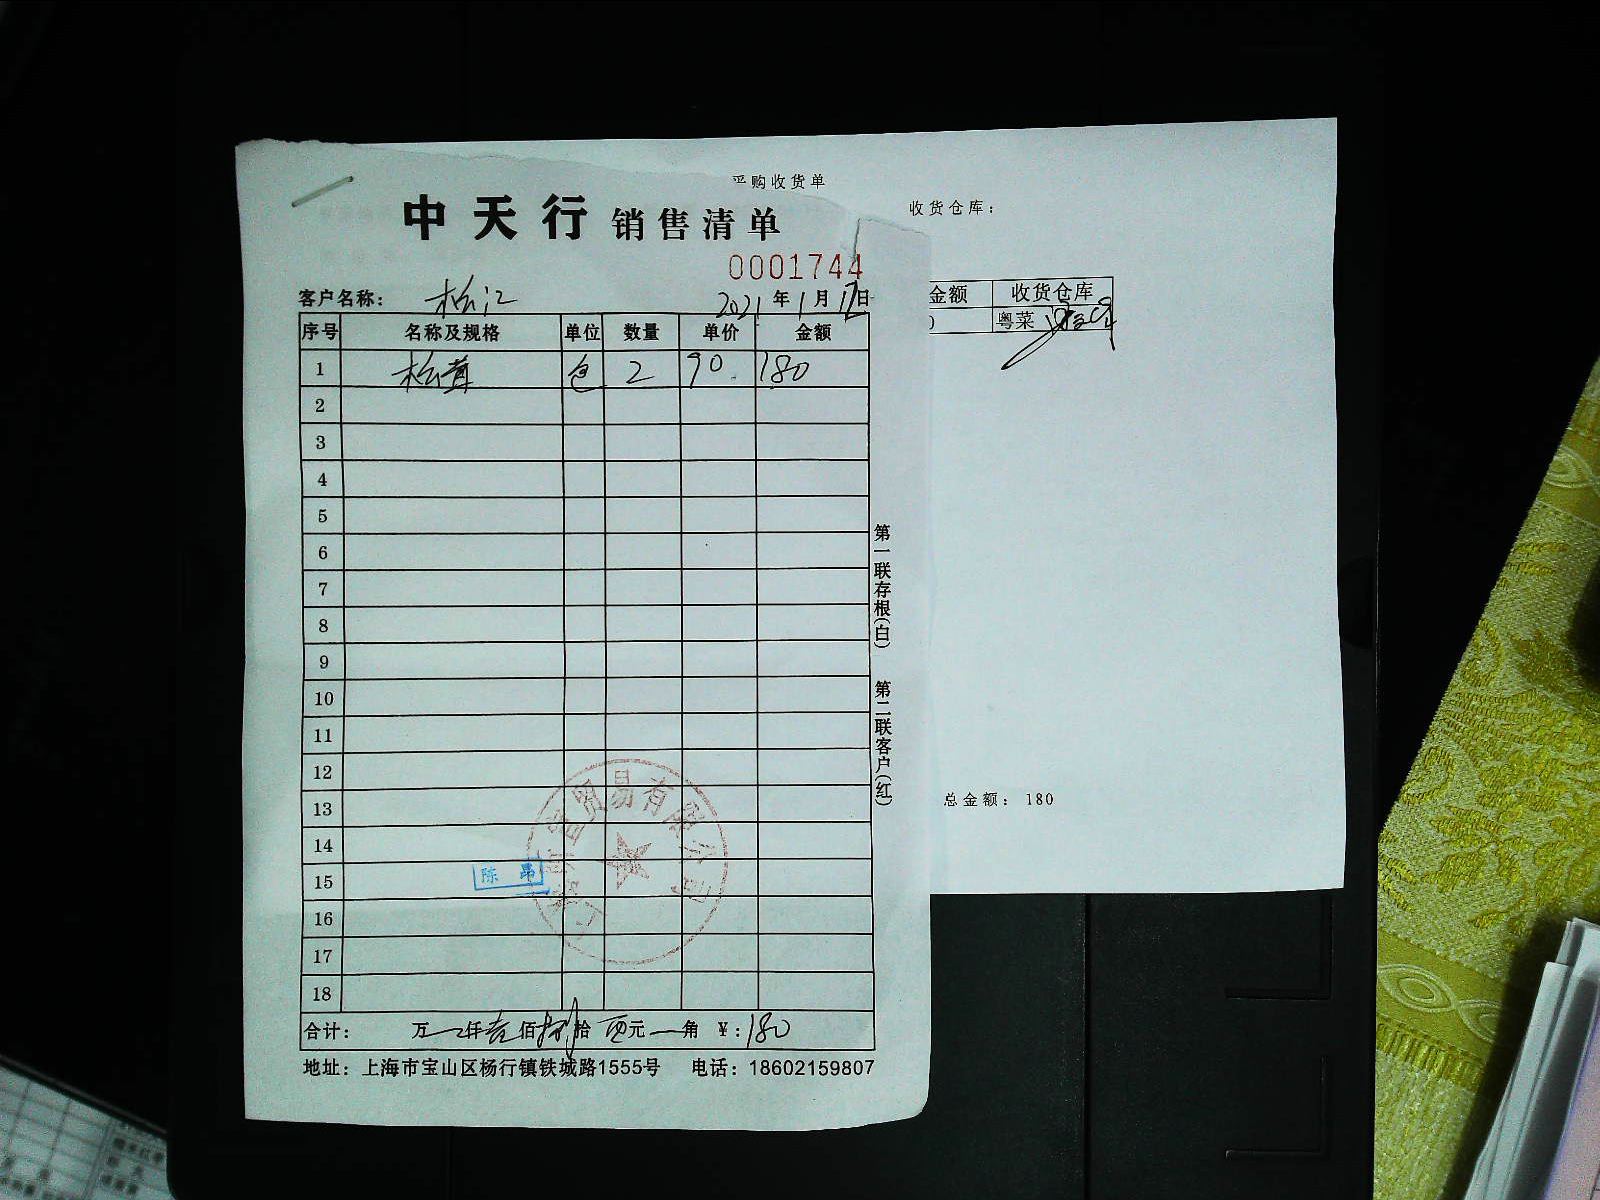 采购收货单
收货仓库：
中天行 销售清单
0001744
客户名称： 松江 2021年1月12日
序号 名称及规格 单位 数量 单价 金额
1 松茸 包 2 90 180
2
3
4
5
6
7
8
9
10
11
12
13
14
15
16
17
18
合计： 万 仟壹佰捌拾 元 角 ¥：180
地址：上海市宝山区杨行镇铁城路1555号 电话：18602159807
第一联存根(白) 第二联客户(红)
贸易有限公司
陈昂
金额 收货仓库
粤菜
总金额： 180